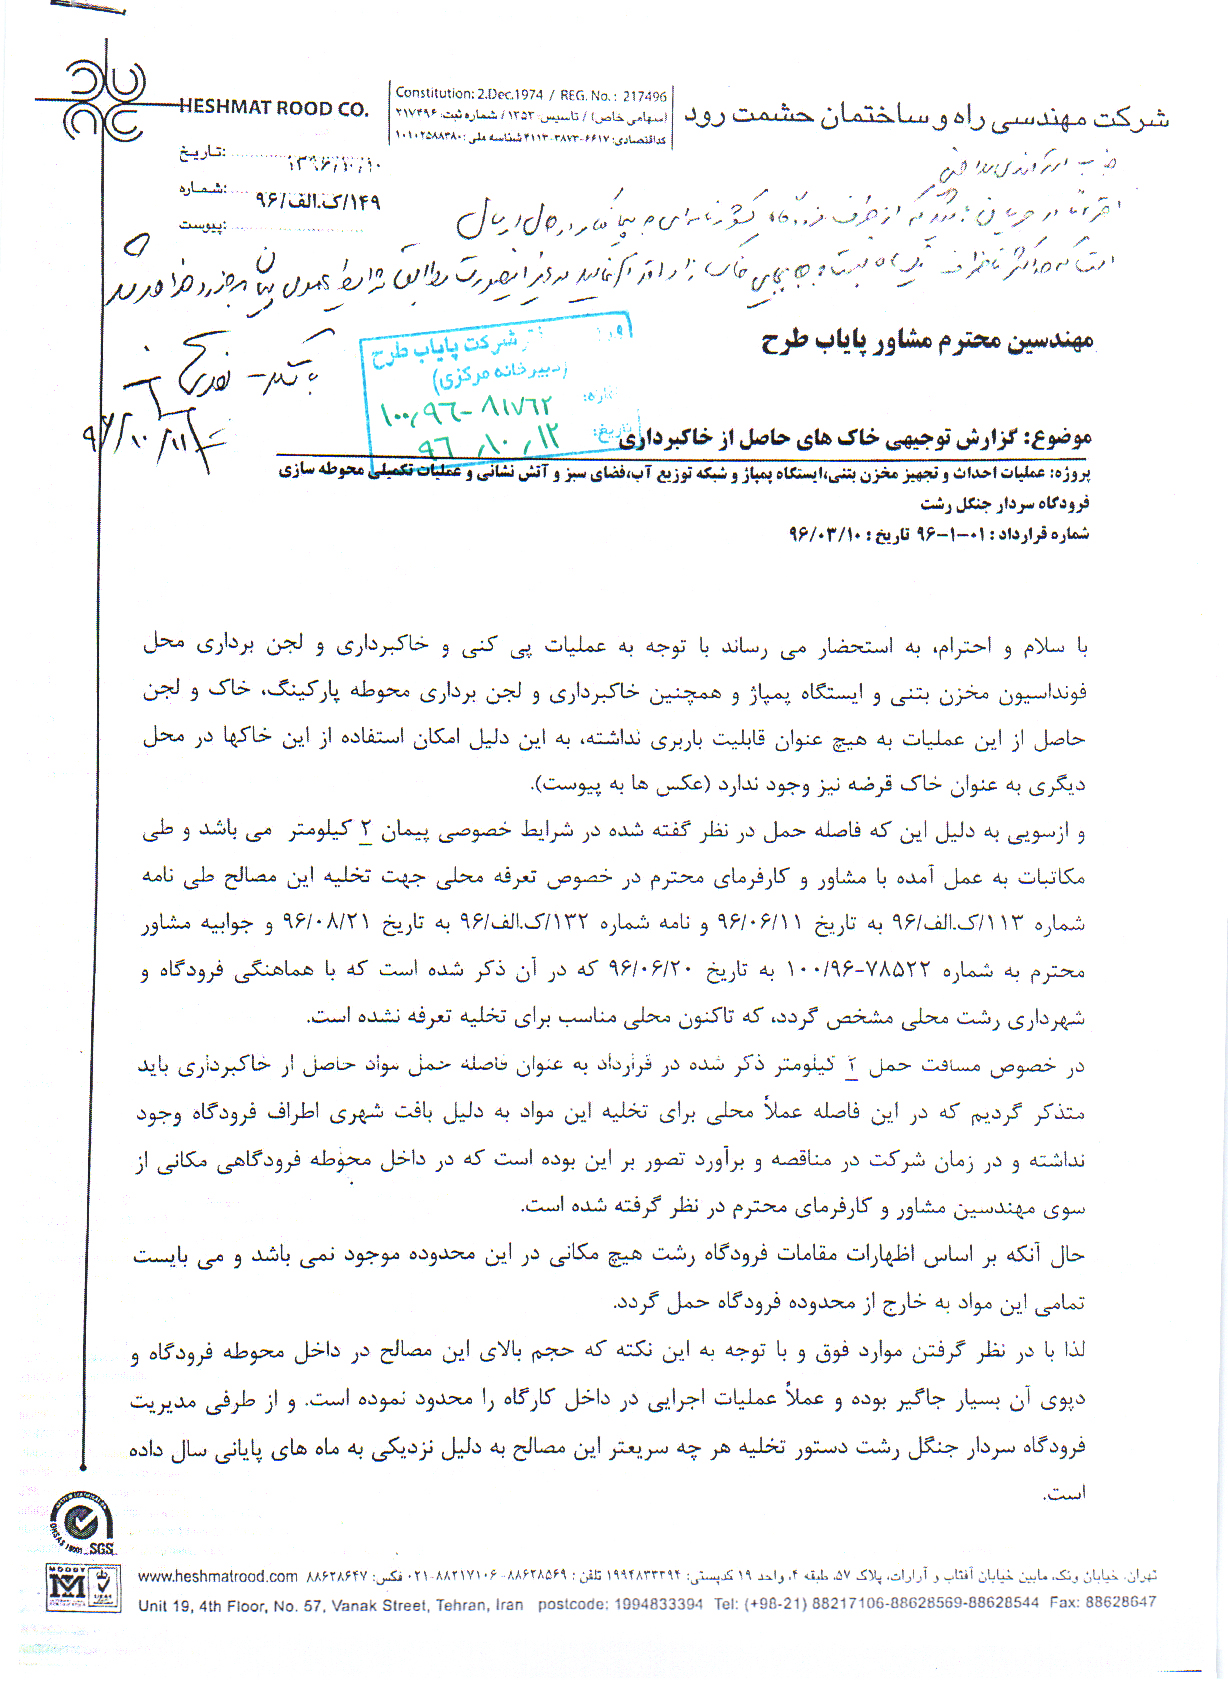 HESHMAT ROOD CO.
Constitution: 2.Dec.1974 / REG. No. : 217496
(سهامی خاص) / تاسیس: ۱۳۵۳ / شماره ثبت: ۲۱۷۴۹۶
کداقتصادی: ۶۶۱۷-۳۸۷۳-۴۱۱۳ شناسه ملی: ۱۰۱۰۲۵۸۸۳۸۰
شرکت مهندسی راه و ساختمان حشمت رود
تاریخ: ۱۳۹۶/۱۰/۱۰
شماره: ۱۴۹/ک.الف/۹۶
پیوست:
مهندسین محترم مشاور پایاب طرح
شرکت پایاب طرح
(دبیرخانه مرکزی)
شماره: ۱۰۰٫۹۶-۸۱۷۶۲
تاریخ: ۹۶٫۱۰٫۱۲
با تشکر
۹۶/۱۰/۱۱
موضوع: گزارش توجیهی خاک های حاصل از خاکبرداری
پروژه: عملیات احداث و تجهیز مخزن بتنی،ایستگاه پمپاژ و شبکه توزیع آب،فضای سبز و آتش نشانی و عملیات تکمیلی محوطه سازی
فرودگاه سردار جنگل رشت
شماره قرارداد : ۰۱-۱-۹۶ تاریخ : ۹۶/۰۳/۱۰
با سلام و احترام، به استحضار می رساند با توجه به عملیات پی کنی و خاکبرداری و لجن برداری محل
فونداسیون مخزن بتنی و ایستگاه پمپاژ و همچنین خاکبرداری و لجن برداری محوطه پارکینگ، خاک و لجن
حاصل از این عملیات به هیچ عنوان قابلیت باربری نداشته، به این دلیل امکان استفاده از این خاکها در محل
دیگری به عنوان خاک قرضه نیز وجود ندارد (عکس ها به پیوست).
و ازسویی به دلیل این که فاصله حمل در نظر گفته شده در شرایط خصوصی پیمان ۲ کیلومتر می باشد و طی
مکاتبات به عمل آمده با مشاور و کارفرمای محترم در خصوص تعرفه محلی جهت تخلیه این مصالح طی نامه
شماره ۱۱۳/ک.الف/۹۶ به تاریخ ۹۶/۰۶/۱۱ و نامه شماره ۱۳۲/ک.الف/۹۶ به تاریخ ۹۶/۰۸/۲۱ و جوابیه مشاور
محترم به شماره ۷۸۵۲۲-۱۰۰/۹۶ به تاریخ ۹۶/۰۶/۲۰ که در آن ذکر شده است که با هماهنگی فرودگاه و
شهرداری رشت محلی مشخص گردد، که تاکنون محلی مناسب برای تخلیه تعرفه نشده است.
در خصوص مسافت حمل ۲ کیلومتر ذکر شده در قرارداد به عنوان فاصله حمل مواد حاصل از خاکبرداری باید
متذکر گردیم که در این فاصله عملاً محلی برای تخلیه این مواد به دلیل بافت شهری اطراف فرودگاه وجود
نداشته و در زمان شرکت در مناقصه و برآورد تصور بر این بوده است که در داخل محوطه فرودگاهی مکانی از
سوی مهندسین مشاور و کارفرمای محترم در نظر گرفته شده است.
حال آنکه بر اساس اظهارات مقامات فرودگاه رشت هیچ مکانی در این محدوده موجود نمی باشد و می بایست
تمامی این مواد به خارج از محدوده فرودگاه حمل گردد.
لذا با در نظر گرفتن موارد فوق و با توجه به این نکته که حجم بالای این مصالح در داخل محوطه فرودگاه و
دپوی آن بسیار جاگیر بوده و عملاً عملیات اجرایی در داخل کارگاه را محدود نموده است. و از طرفی مدیریت
فرودگاه سردار جنگل رشت دستور تخلیه هر چه سریعتر این مصالح به دلیل نزدیکی به ماه های پایانی سال داده
است.
SGS
MOODY
تهران، خیابان ونک، مابین خیابان آفتاب و آرارات، پلاک ۵۷، طبقه ۴، واحد ۱۹ کدپستی: ۱۹۹۴۸۳۳۳۹۴ تلفن : ۸۸۶۲۸۵۶۹-۸۸۲۱۷۱۰۶-۰۲۱ فکس: ۸۸۶۲۸۶۴۷ www.heshmatrood.com
Unit 19, 4th Floor, No. 57, Vanak Street, Tehran, Iran postcode: 1994833394 Tel: (+98-21) 88217106-88628569-88628544 Fax: 88628647